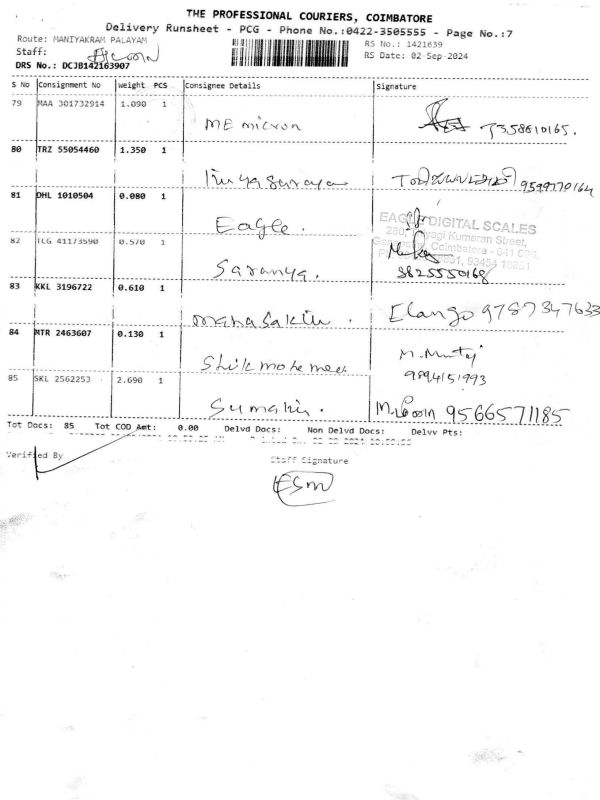 THE PROFESSIONAL COURIERS, COIMBATORE
Delivery Runsheet - PCG - Phone No.:0422-3505555 - Page No.:7
Route: MANIYAKRAM PALAYAM
RS No.: 1421639
Staff:
RS Date: 02-Sep-2024
DRS No.: DCJB142163907
S No Consignment No Weight PCS Consignee Details Signature
79 MAA 301732914 1.090 1
ME micron 7358610165.
80 TRZ 55054460 1.350 1
9599770164
81 DHL 1010504 0.080 1
Eagle.
EAGLE DIGITAL SCALES
Kumaran Street,
82 TCG 41173590 0.570 1
Coimbatore - 641
Saranya.
83 KKL 3196722 0.610 1
Elango 9787347633
84 MTR 2463607 0.130 1
9894151993
85 SKL 2562253 2.690 1
9566571185
Tot Docs: 85 Tot COD Amt: 0.00 Delvd Docs: Non Delvd Docs: Delvv Pts:
Verified By
Staff Signature